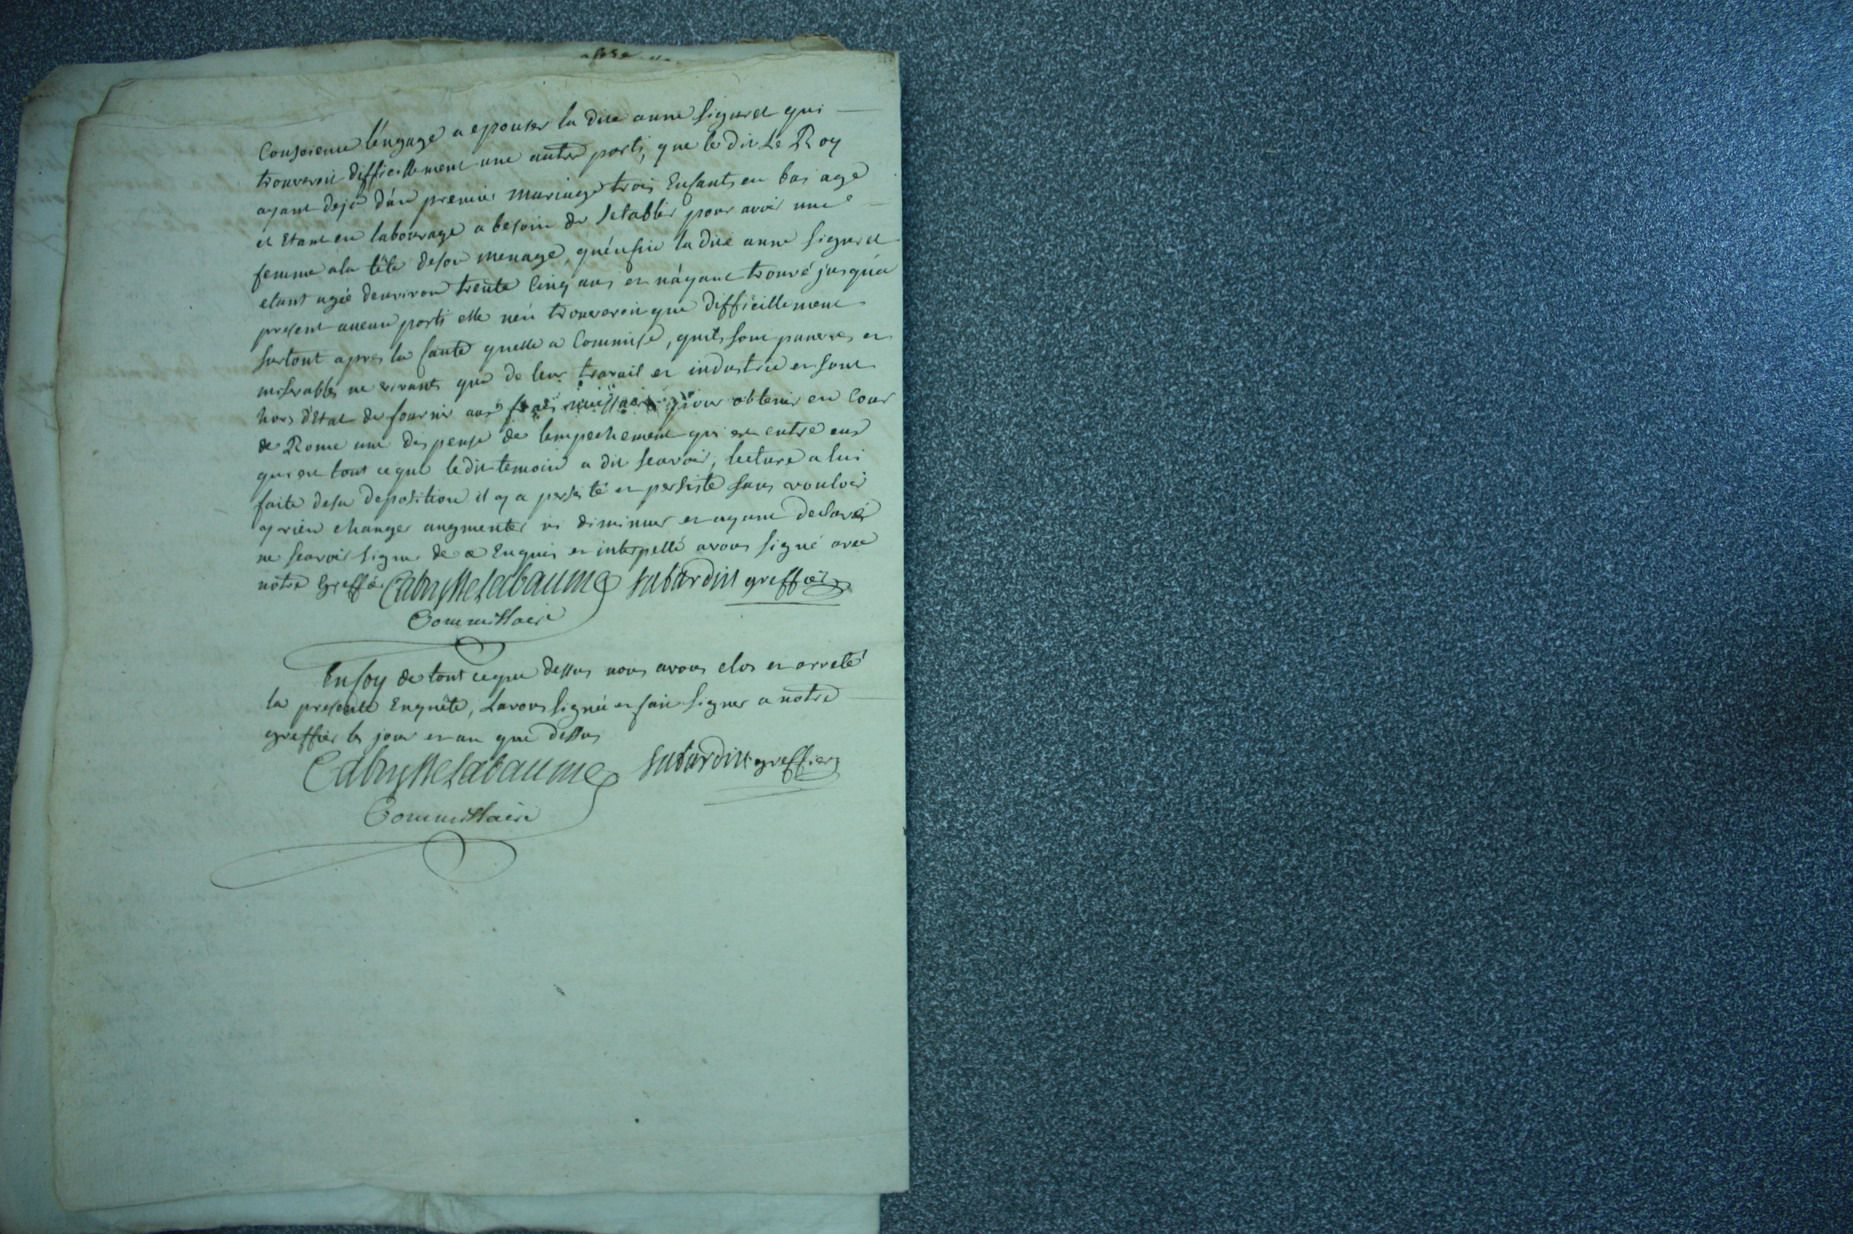 Conscience l'engage a epouser la dite anne Signoret qui
trouveroit difficillement une autre parti, que le dit Le Roy
ayant deja d'un premier mariage trois Enfants en bas age
et Etant en labourage a besoin de s'etablir pour avoir une
femme a la tête de son menage, qu'enfin la dite anne Signoret
etant agée denviron trente Cinq ans et n'ayant trouvé jusqu'a
present aucun parti elle n'en trouveroit que difficillement
surtout apres la faute quelle a Commise, quils sont pauvres et
miserables ne vivants que de leur travail et industrie et sont
hors d'Etat de fournir aux frais necessaires pour obtenir en Cour
de Rome une dispense de lempechement qui est entre eux
qui est tout ce que le dit temoin a dit scavoir, lecture a lui
faite de sa deposition il y a persisté et persiste sans vouloir
y rien changer augmenter ni diminuer et ayant declaré
ne scavoir signer de ce Enquis et interpellé avons signé avec
notre Greffier. greffier
Commissaire
En foy de tout ce que dessus nous avons clos et arreté
la presente Enquête, Lavons signée et fait signer a notre
greffier les jour et an que dessus
greffier
Commissaire